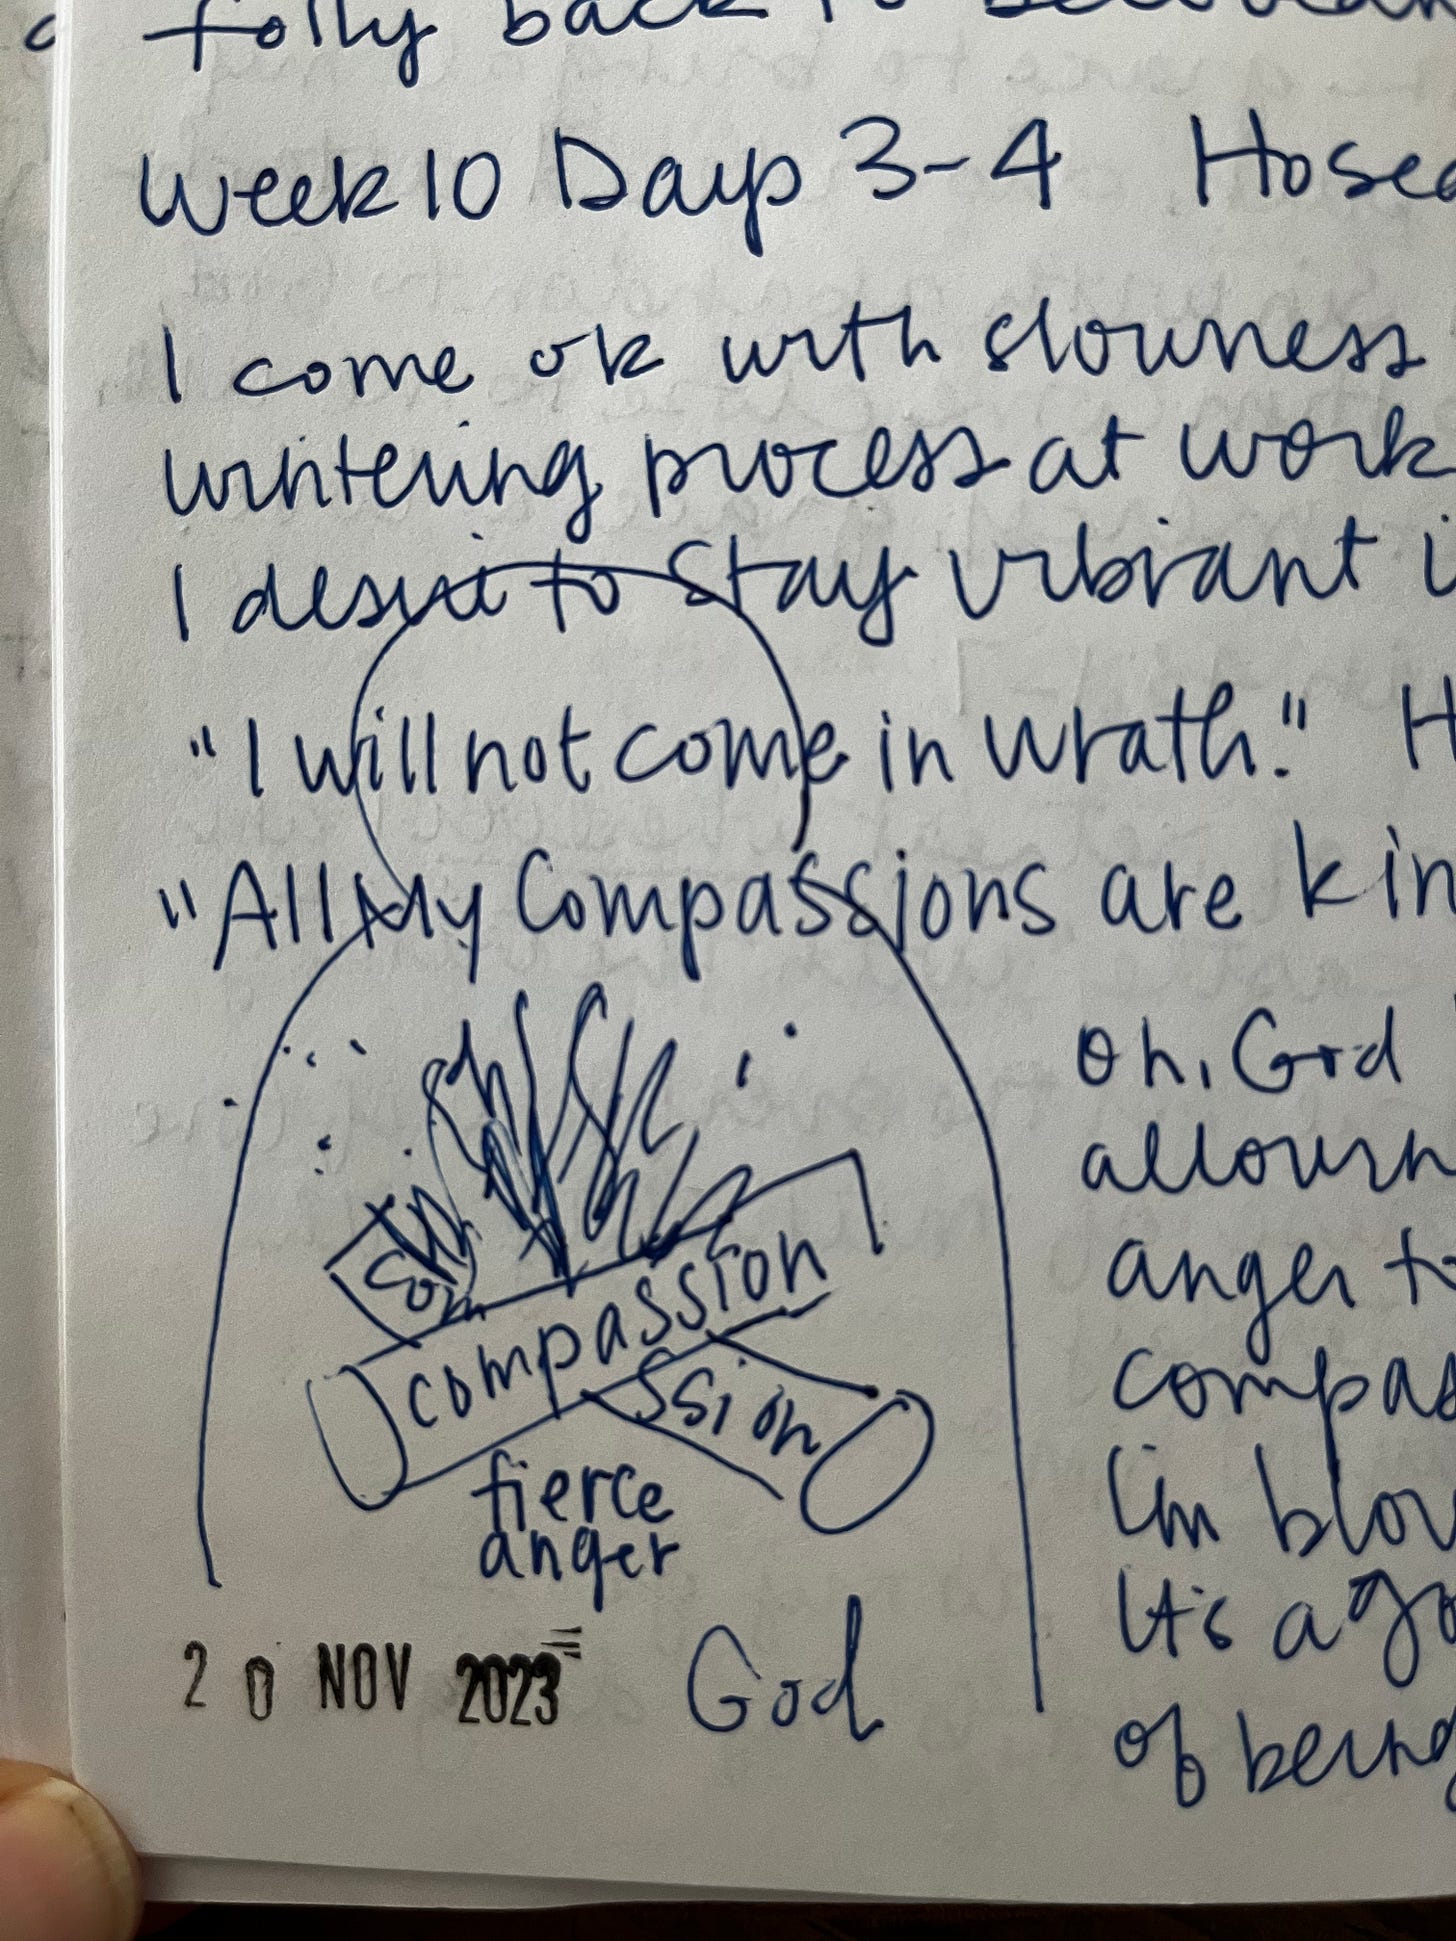 folly back to
Week 10 Days 3-4 Hosea
I come ok with slowness
wintering process at work
I desire to stay vibrant i
"I will not come in wrath." H
"All My Compassions are kin
Oh, God
allown
anger to
compas
I'm blow
It's a go
of being
com
compassion
ssion
fierce
anger
20 NOV 2023
God